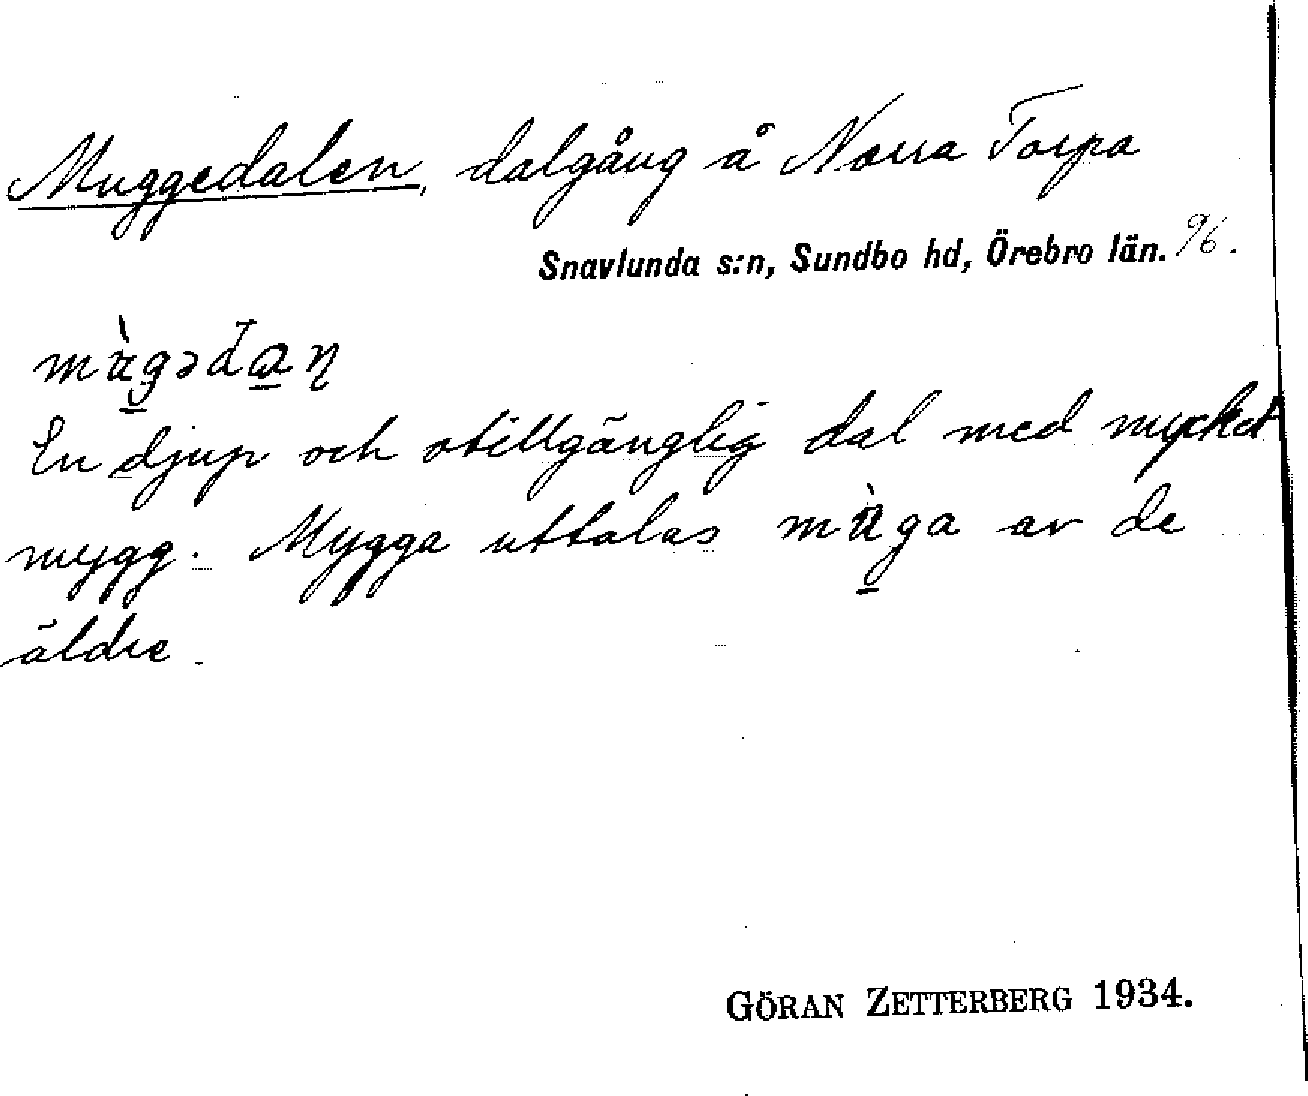 Muggedalen, dalgång å Norra Torpa
Snavlunda s:n, Sundbo hd, Örebro län. 96.
mùg̱əda̱ṇ
En djup och otillgänglig dal med mycket
mygg. Mygga uttalas mùg̱a av de
äldre.
GÖRAN ZETTERBERG 1934.